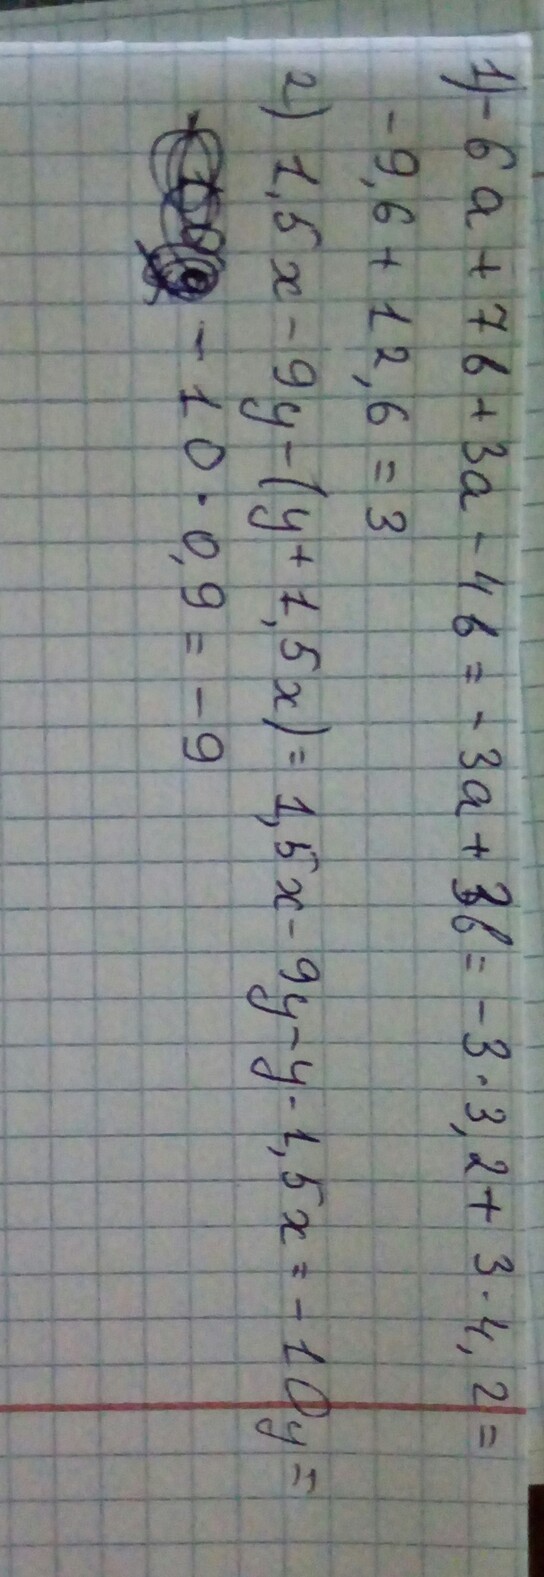 1) -6a + 7в + 3a - 4в = -3a + 3в = -3·3,2 + 3·4,2 =
-9,6 + 12,6 = 3
2) 1,5x - 9y - (y + 1,5x) = 1,5x - 9y - y - 1,5x = -10y =
-10·0,9 = -9